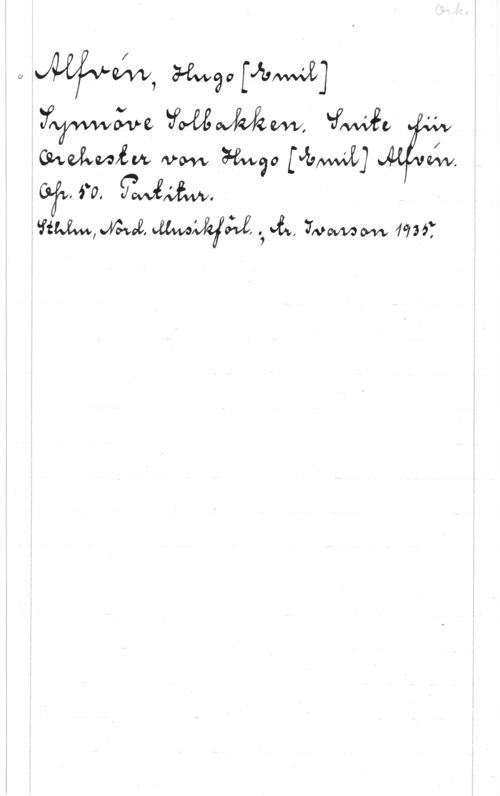 Ork.
Alfvén, Hugo [Emil]
Synnöve Solbakken. Suite für
Orchester von Hugo [Emil] Alfvén.
Op. 50. Partitur.
Sthlm, Nord. Musikförl.; tr. Ivarson 1935.